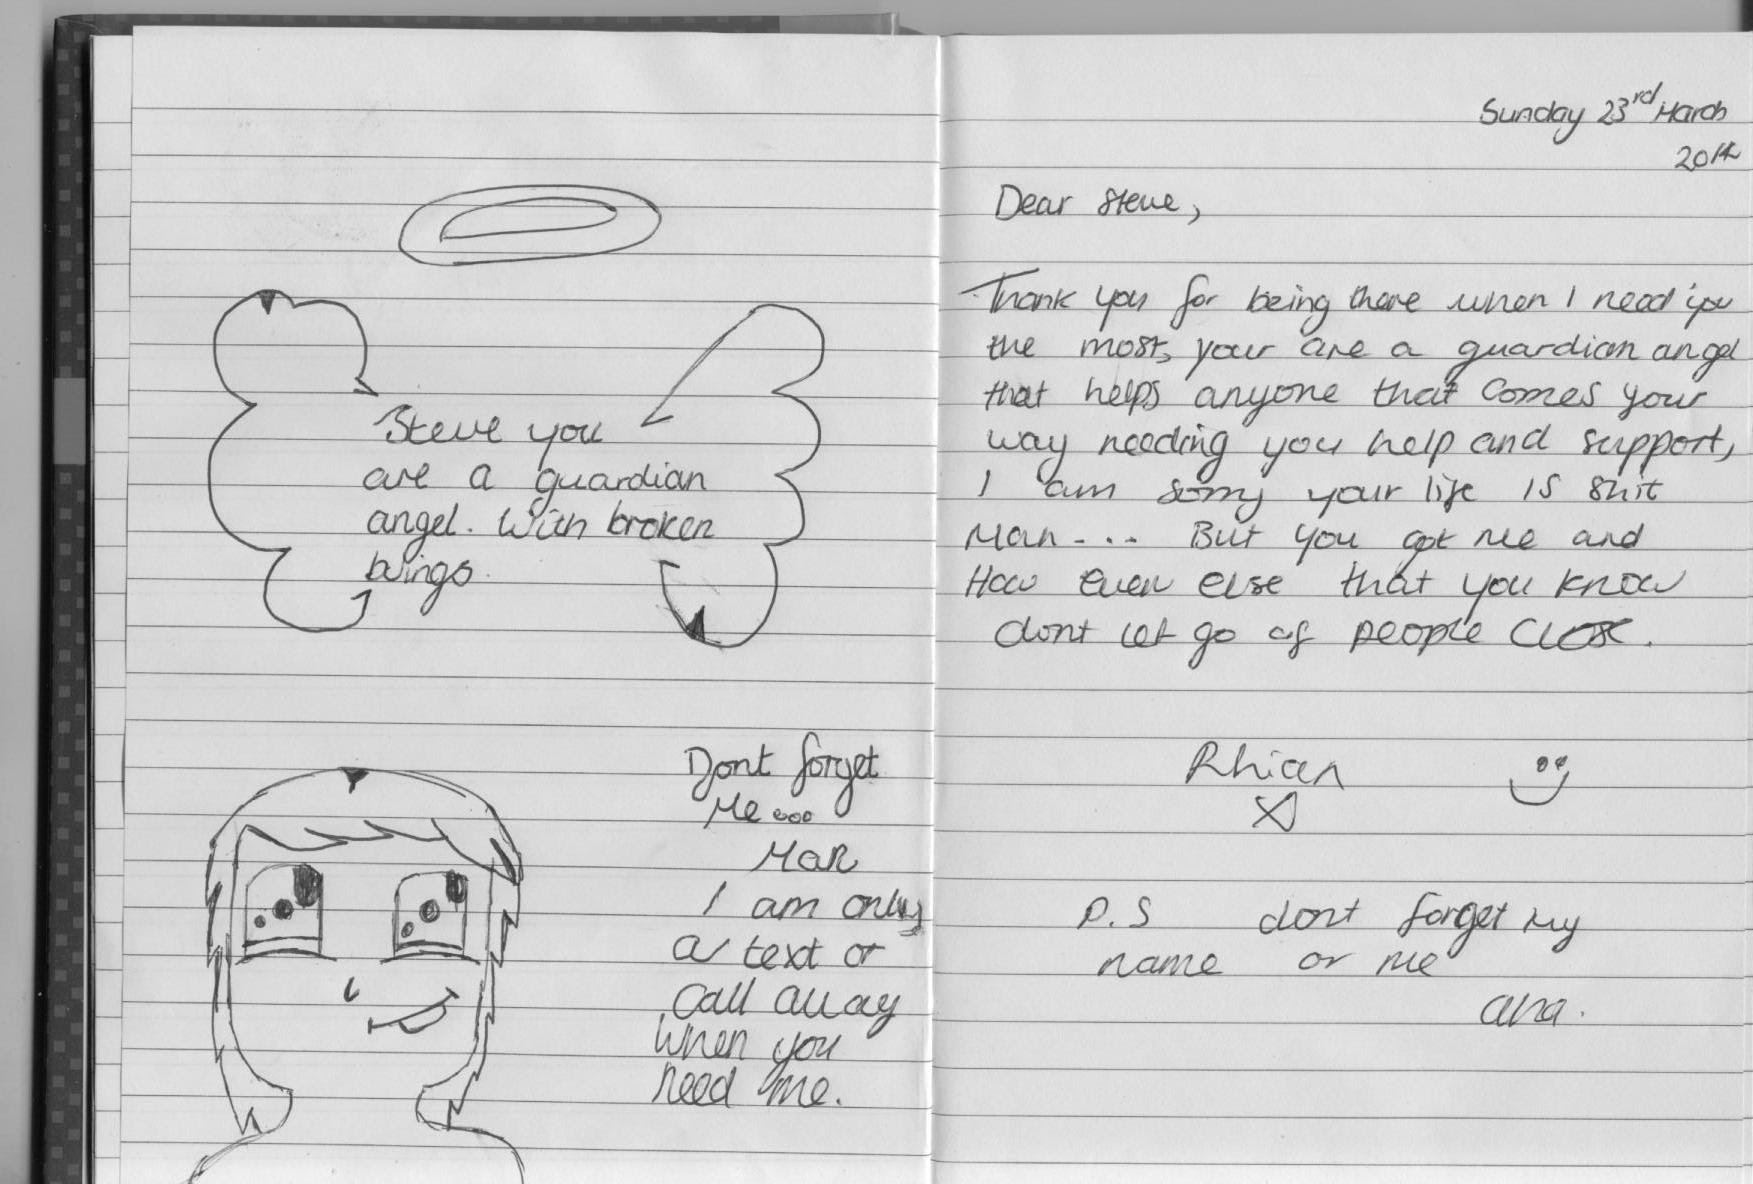 Steve you
are a guardian
angel. With broken
wings.
Dont forget
Me...
Man
I am only
a text or
call away
when you
need me.
Sunday 23rd March
2014
Dear Steve,
Thank you for being there when I need you
the most, your are a guardian angel
that helps anyone that comes your
way needing you help and support,
I am sorry your life is shit
Man.... But you got me and
How ever else that you know
dont let go of people close.
Rhian
X
P.S dont forget my
name or me
aha.